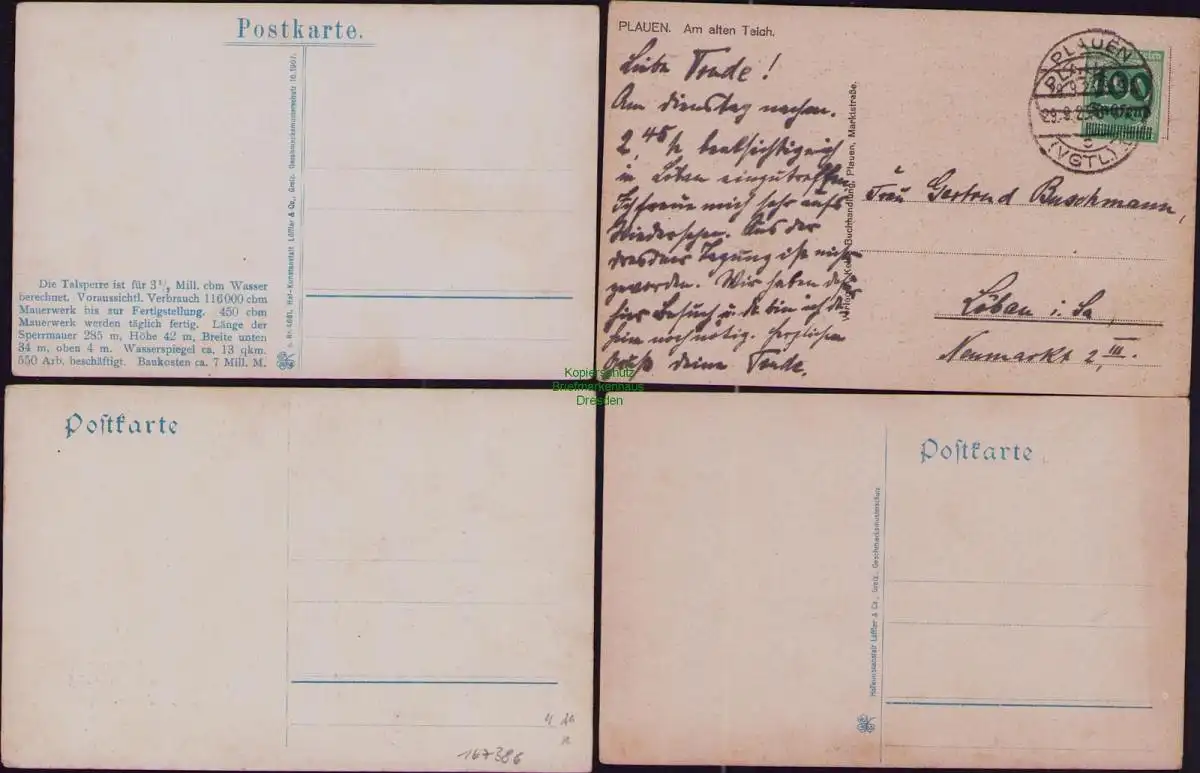 Postkarte.
Die Talsperre ist für 3½ Mill. cbm Wasser
berechnet. Voraussichtl. Verbrauch 116000 cbm
Mauerwerk bis zur Fertigstellung. 450 cbm
Mauerwerk werden täglich fertig. Länge der
Sperrmauer 285 m, Höhe 42 m, Breite unten
34 m, oben 4 m. Wasserspiegel ca. 13 qkm.
550 Arb. beschäftigt. Baukosten ca. 7 Mill. M.
Hof-Kunstanstalt Löffler & Co., Greiz. Geschmacksmusterschutz 10. 1907.
PLAUEN. Am alten Teich.
Liebe Trude!
Am dienstag nachm.
2,45 h beabsichtige ich
in Löbau einzutreffen
Ich freue mich sehr aufs
Wiedersehen. Aus der
dresdner Tagung ist nichts
geworden. Wir haben
hier Besuch u. da bin ich
noch nötig. Herzlichen
Gruß deine Trude.
Buchhandlung, Plauen, Marktstraße.
PLAUEN
(VGTL.)
100
Frau Gertrud Buschmann,
Löbau i. Sa,
Neumarkt 2, III.
Kopierschutz
Briefmarkenhaus
Dresden
Postkarte
167386
Postkarte
Hofkunstanstalt Löffler & Co., Greiz. Geschmacksmusterschutz